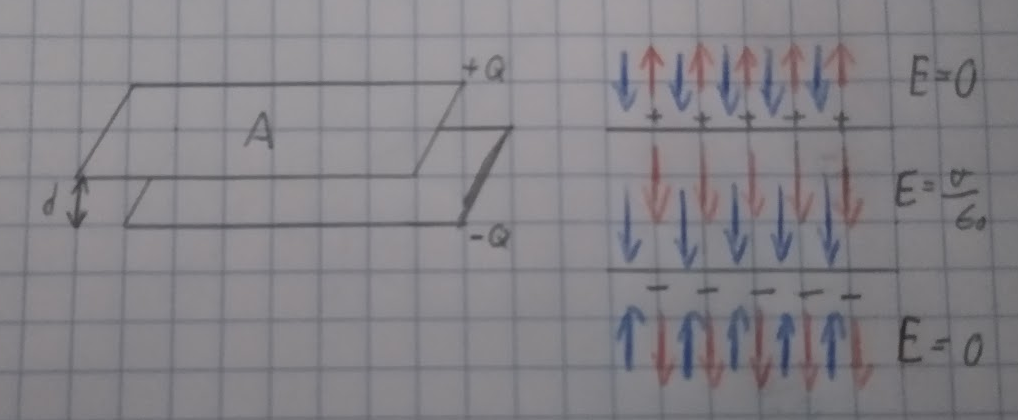 +Q
A
d
-Q
E=0
+ + + + +
E=σ/ε₀
- - - - -
E=0